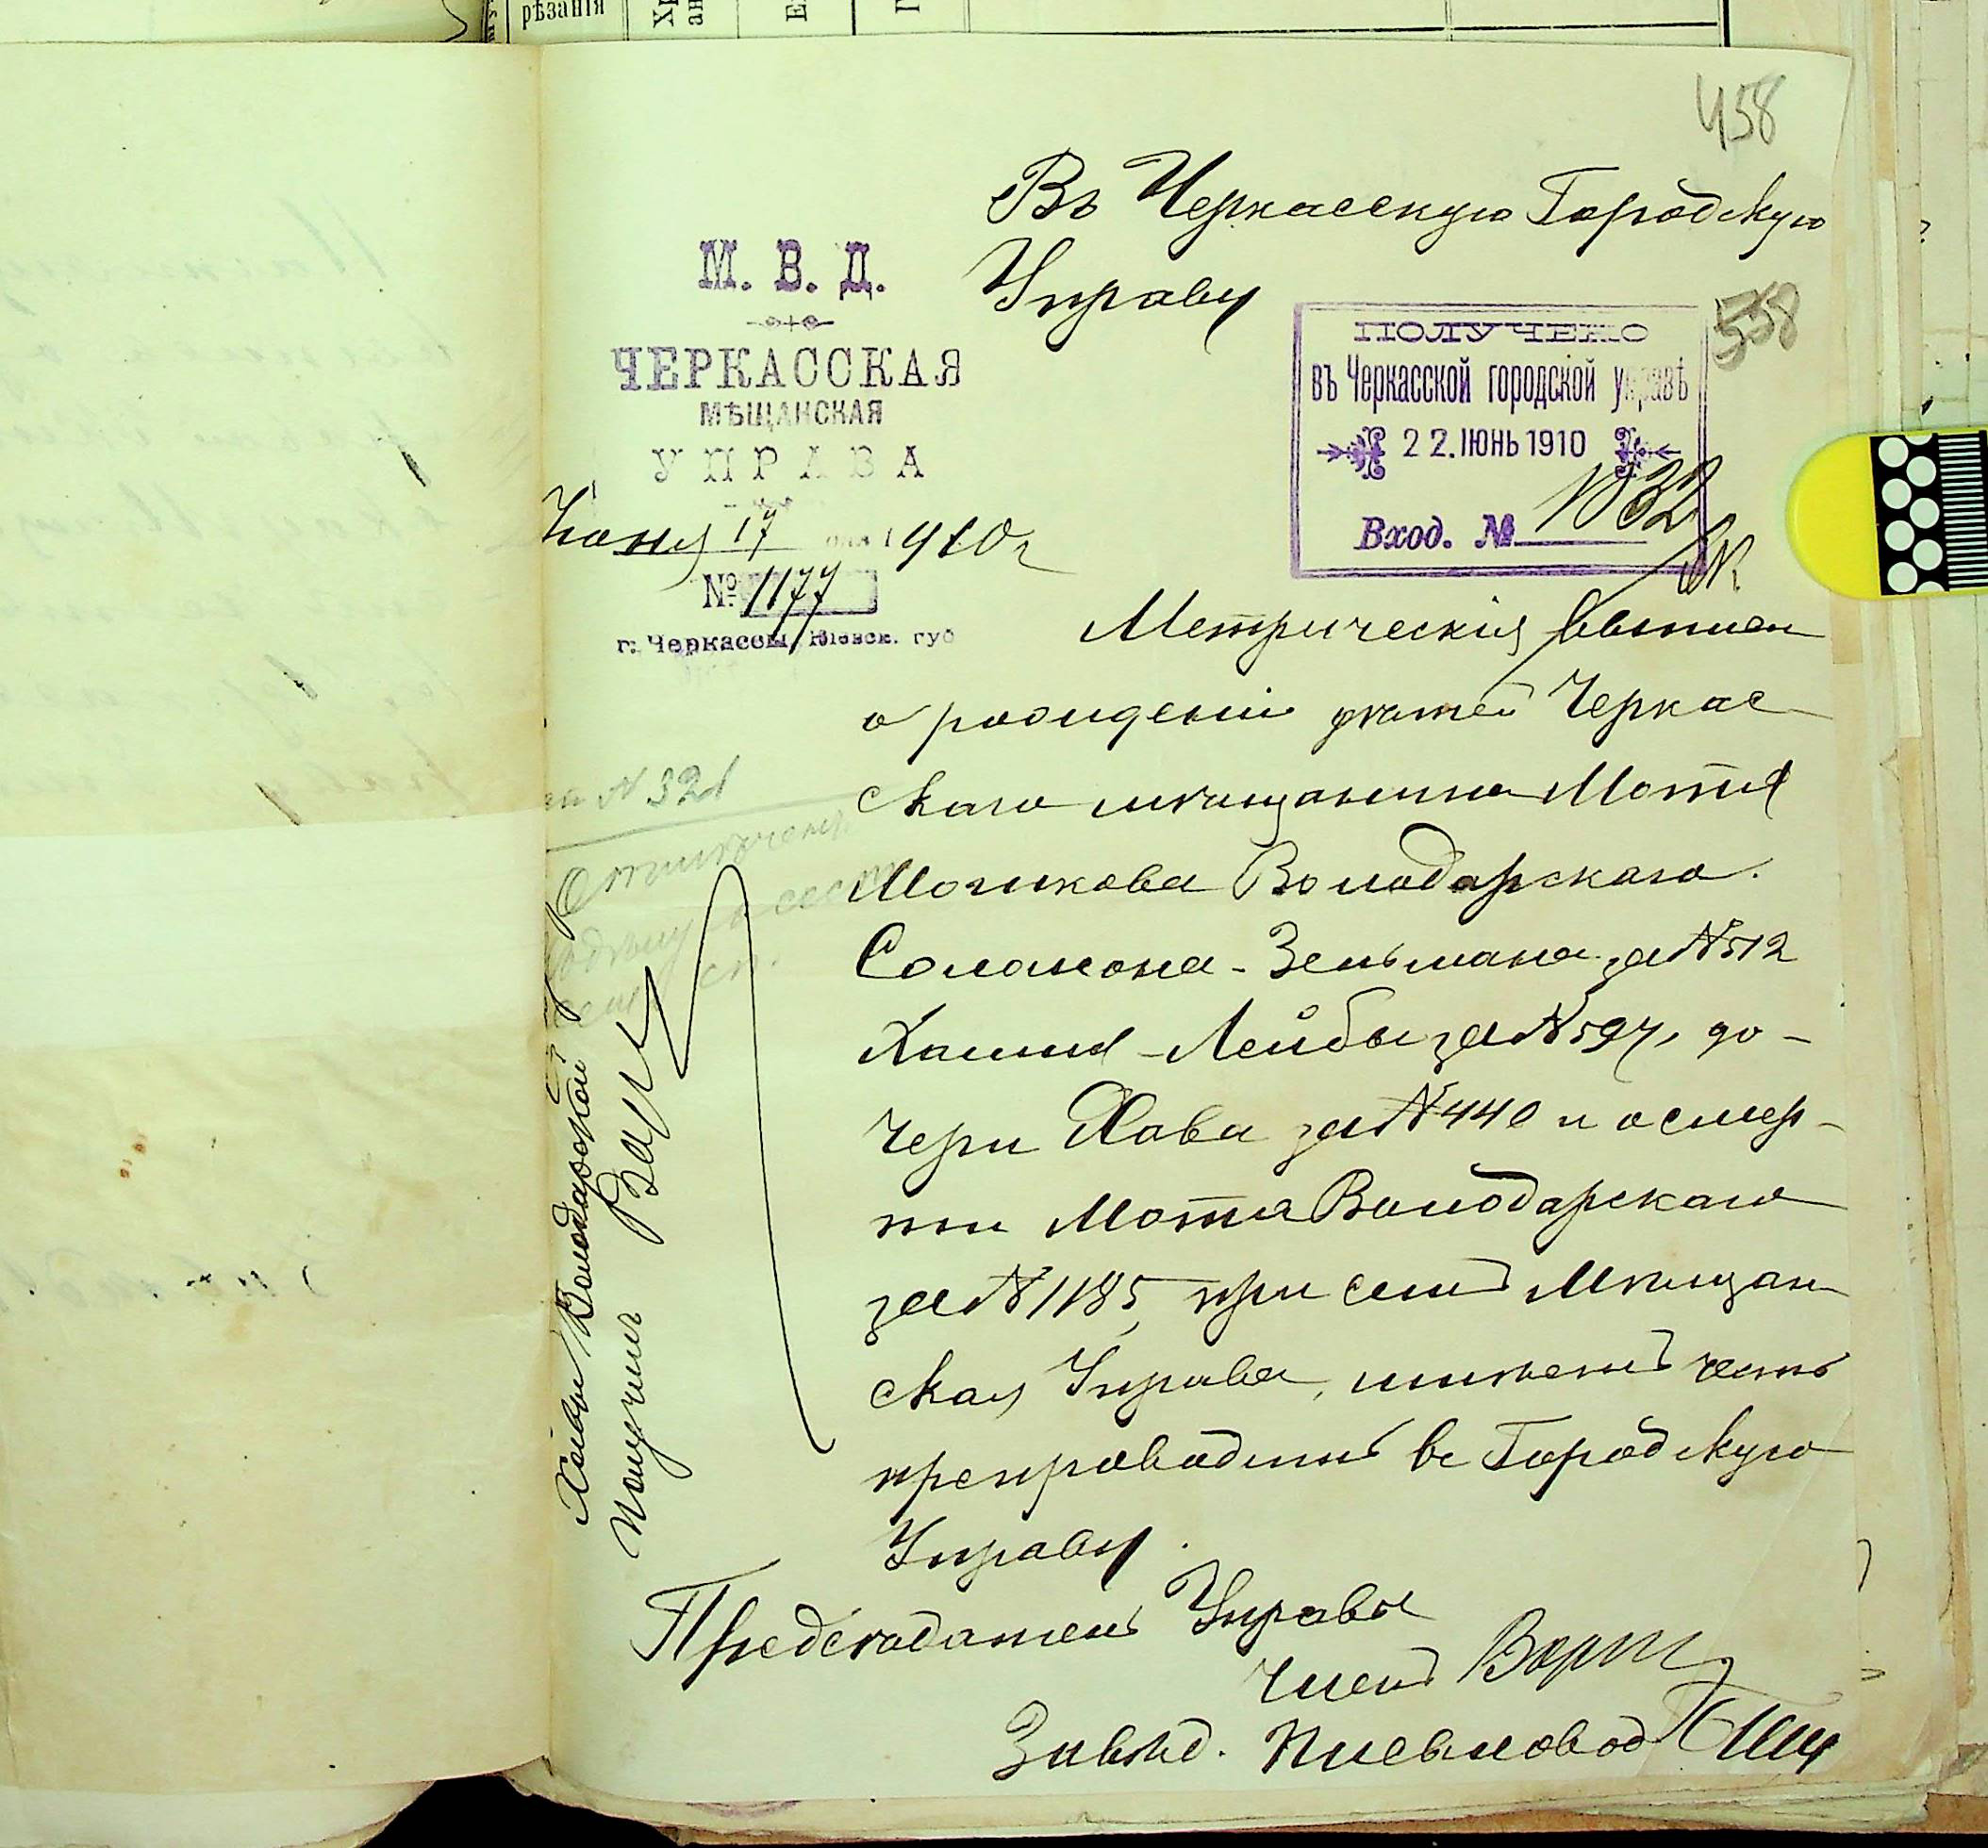 рѣзанія
458
Въ Черкасскую Городскую
Управу
М. В. Д.
ЧЕРКАССКАЯ
МѢЩАНСКАЯ
УПРАВА
Іюня 17 дня 1910 г
№ 1177
г. Черкассы, Кіевск. губ
558
ПОЛУЧЕНО
въ Черкасской городской управѣ
22. ІЮНЬ 1910
Вход. № 1032
Метрическія выписи
о рожденіи дѣтей Черкас
скаго мѣщанина Мотя
Мошкова Володарскаго.
Соломона-Зельмана за № 512
Хаима-Лейбы за № 597, до-
чери Хава за № 440 и о смер-
ти Мотя Володарскаго
за № 1185, при семъ Мѣщан
ская Управа, имѣетъ честь
препроводить въ Городскую
Управу.
Предсѣдатель Управы
Членъ
Завѣд. Письмовод
№ 321
Хавы Володарской
Получилъ